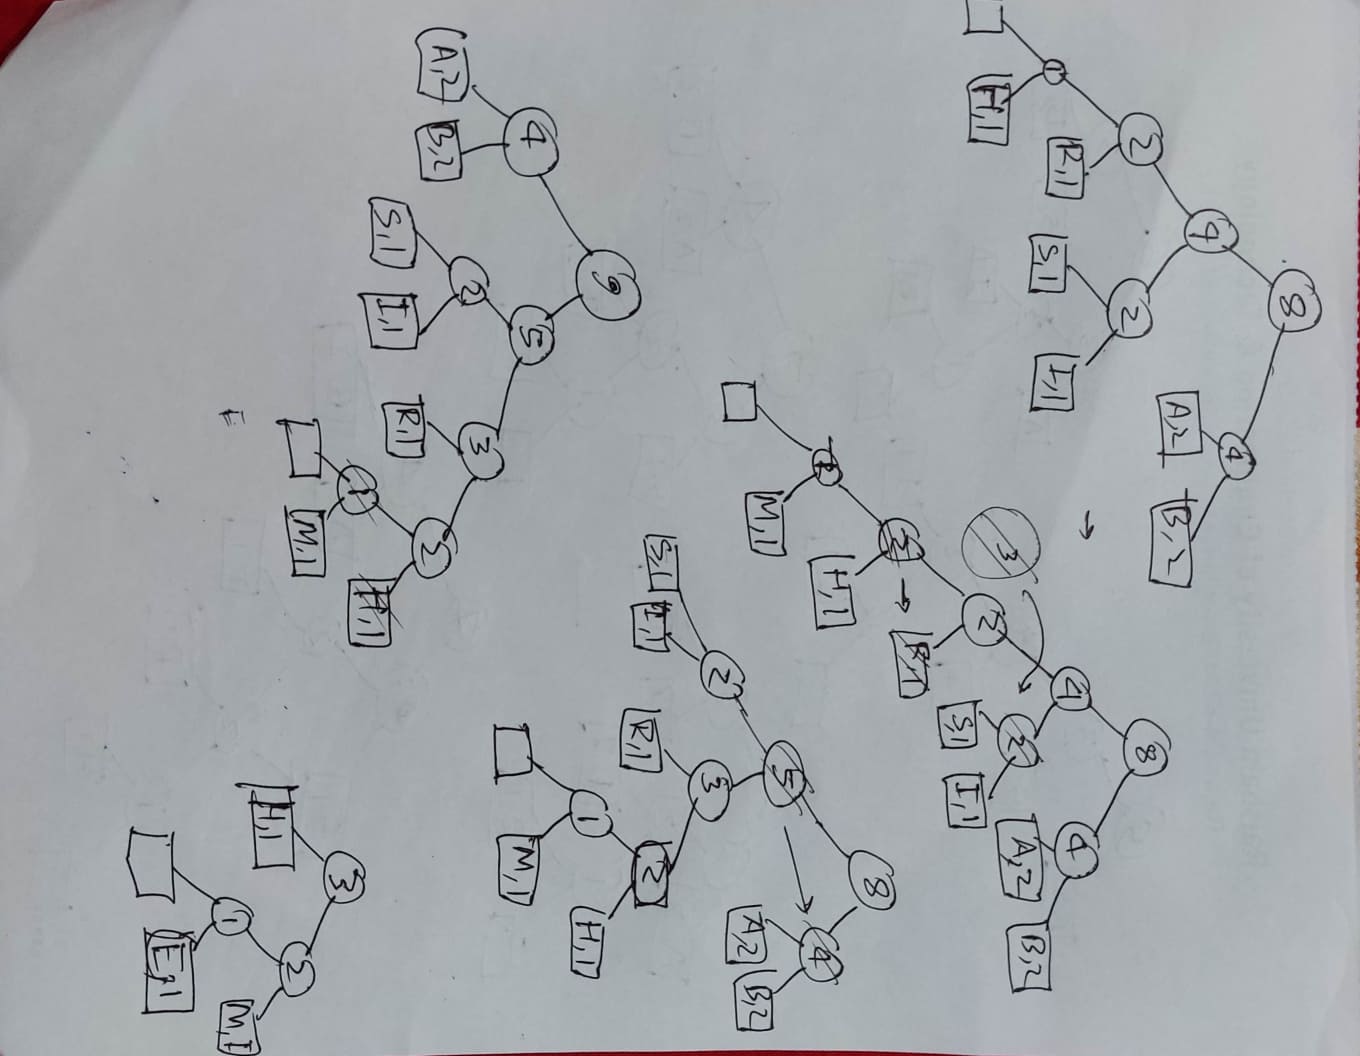 8
4 4
A,2 B,2
2 2
R,1 S,1 I,1
1
H,1
→
8
4 4
A,2 B,2
3 2
2 S,1 I,1
2 → R,1
H,1
M,1
8
5 → 4
A,2 B,2
2 3
S,1 I,1 R,1 2
1 H,1
M,1
9
4 5
A,2 B,2 2 3
S,1 I,1 R,1 2
1 H,1
M,1
E
3
H,1 2
1 M,1
E,1